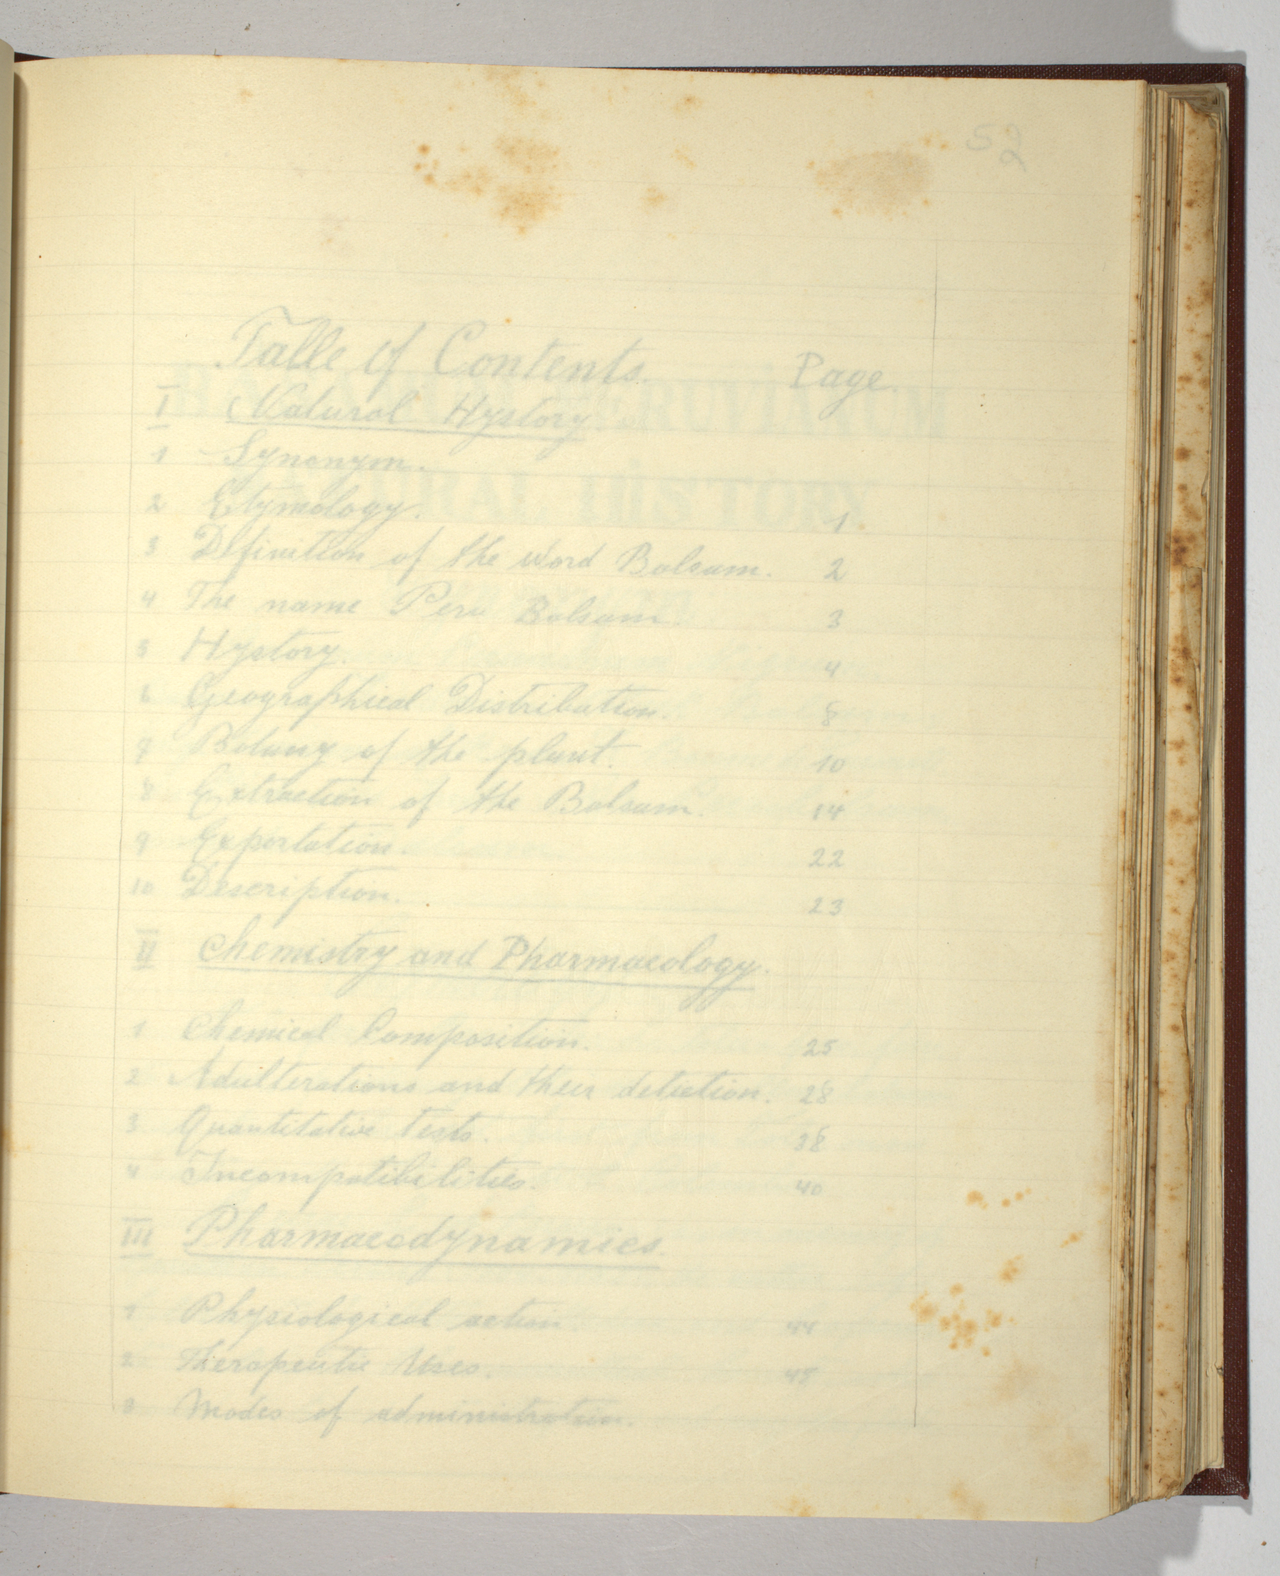 52
Table of Contents. Page.
I Natural Hystory.
1 Synonym.
2 Etymology. 1
3 Definition of the word Balsam. 2
4 The name Peru Balsam 3
5 Hystory. 4
6 Geographical Distribution. 8
7 Botany of the plant. 10
8 Extraction of the Balsam. 14
9 Exportation. 22
10 Description. 23
II Chemistry and Pharmacology.
1 Chemical Composition. 25
2 Adulterations and their detection. 28
3 Quantitative Tests. 38
4 Incompatibilities. 40
III Pharmacodynamics.
1 Physiological action. 44
2 Therapeutic Uses. 45
3 Modes of administration.